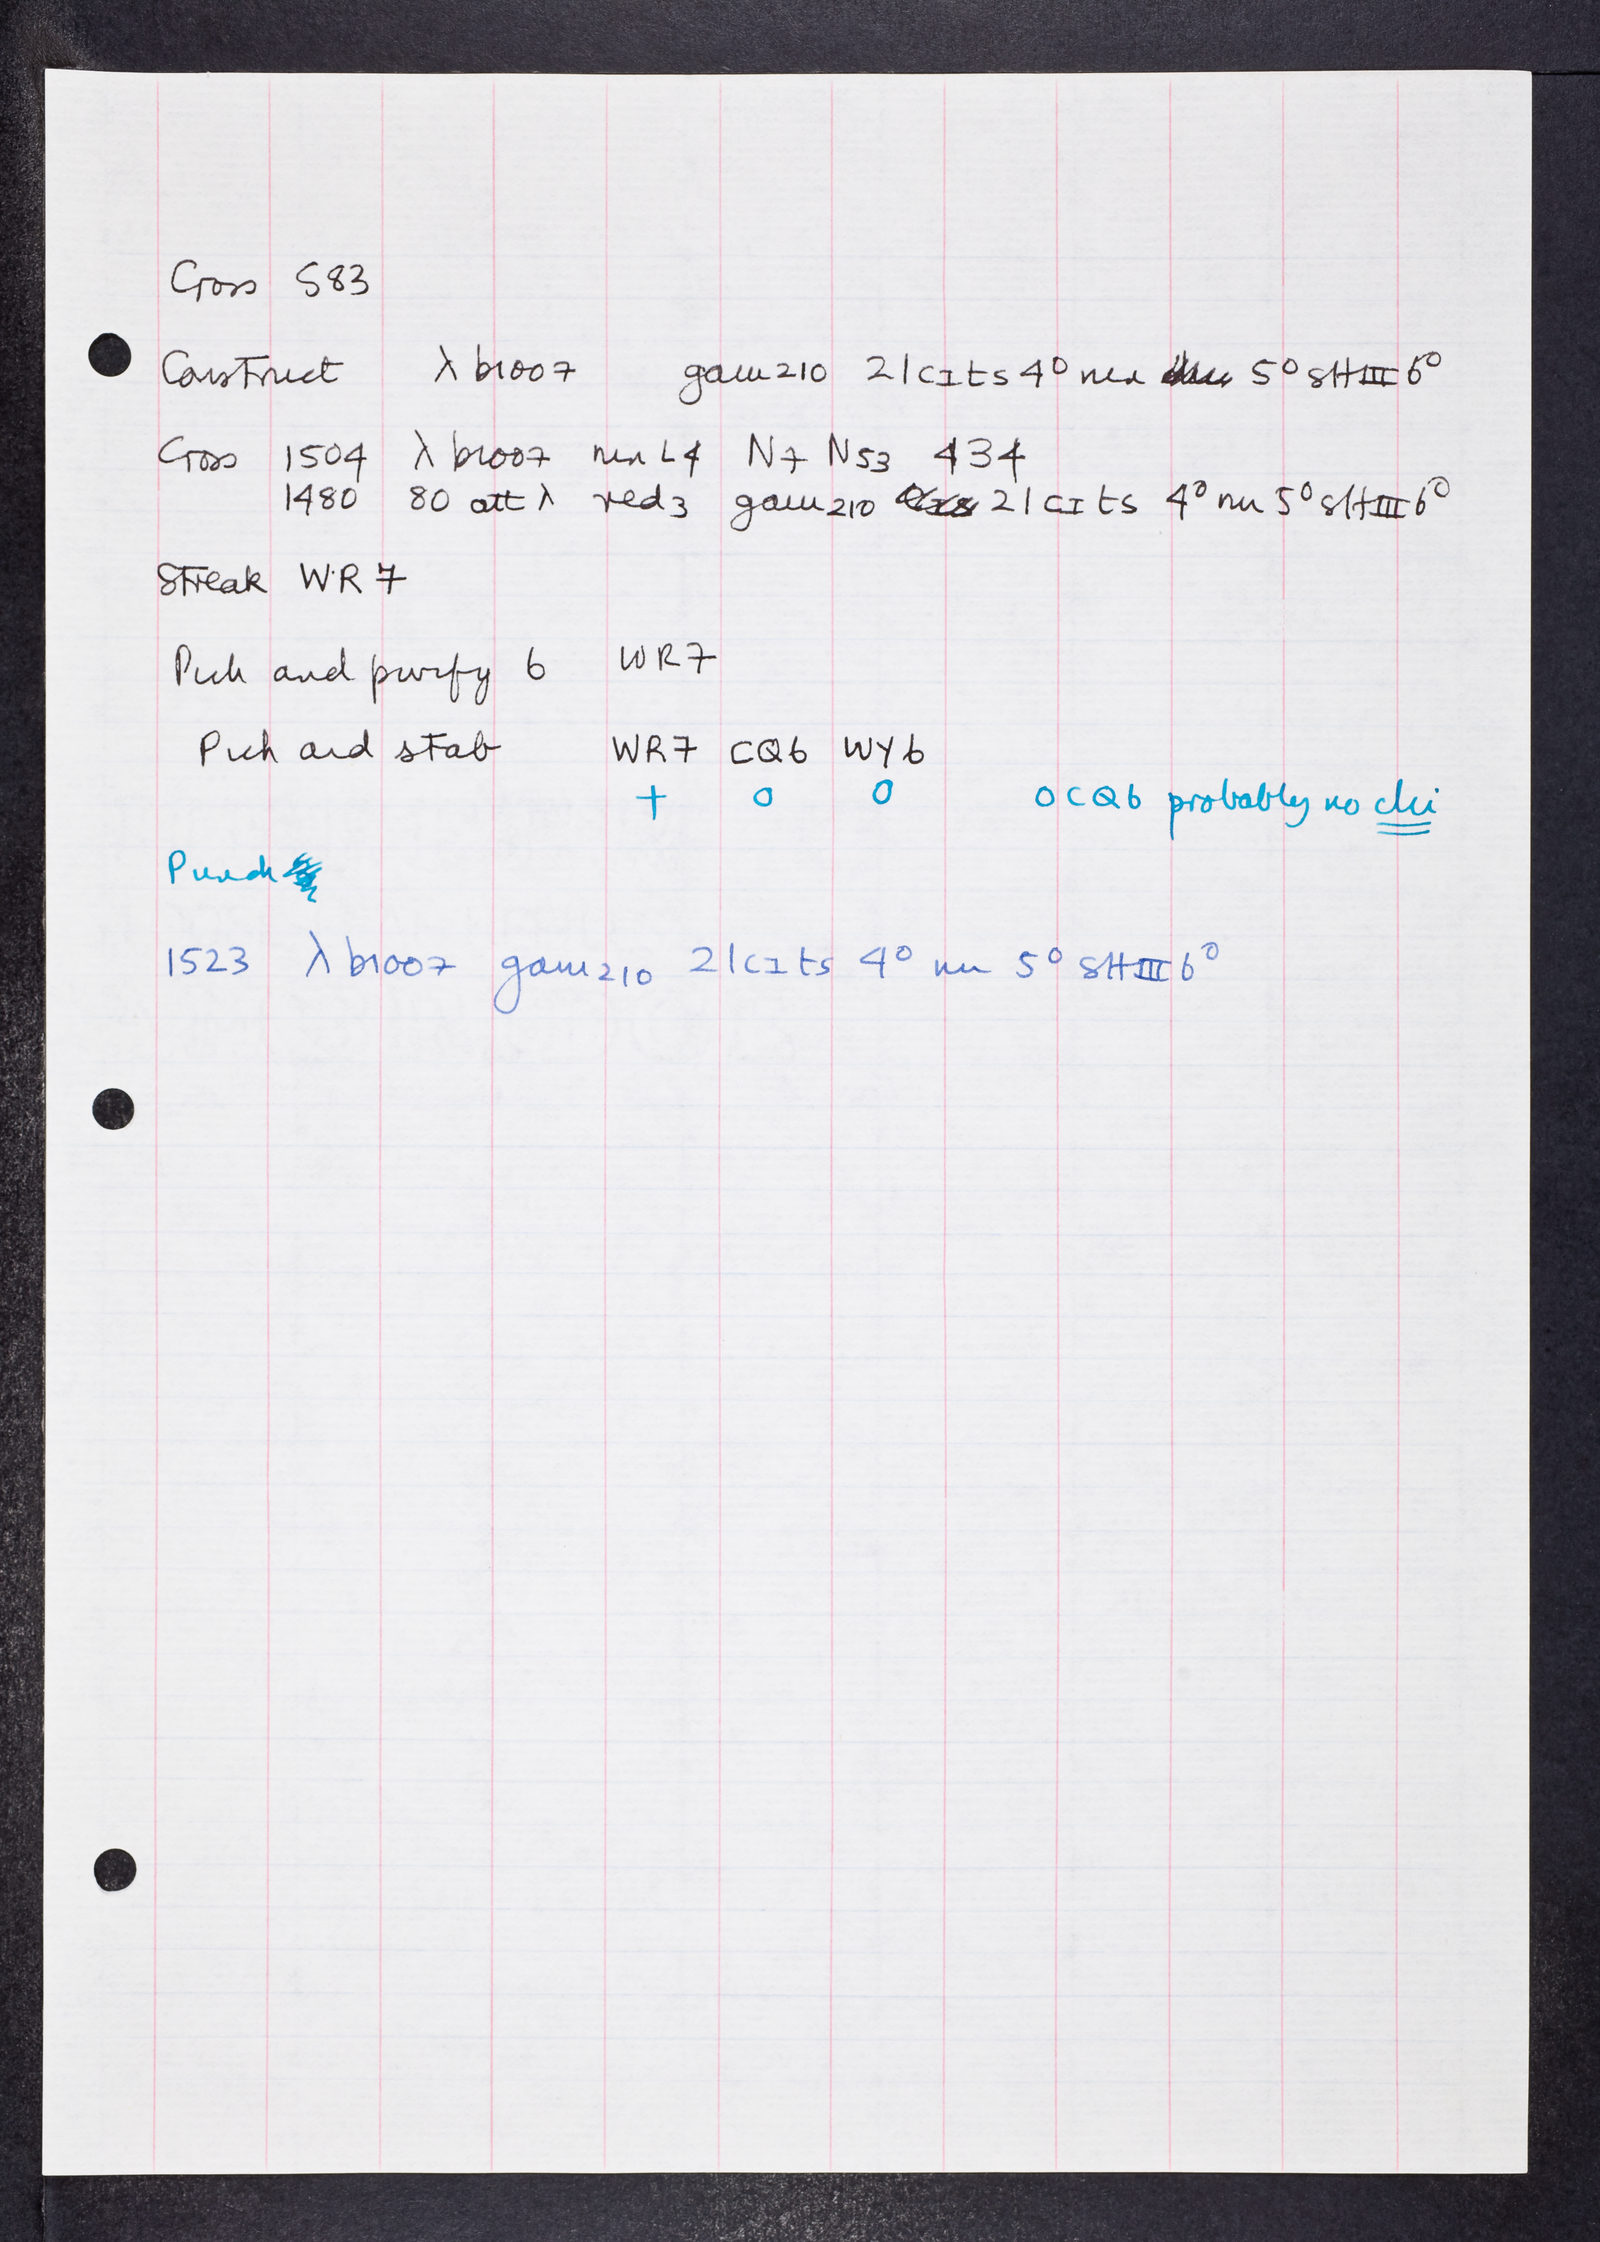 Cross 583
Construct λ b1007 gam210 21cIts 4° nin 5° sHIII6°
Cross 1504 λ b1007 nin L4 N7 N53 434
1480 80 att λ red3 gam210 21cIts 4° nin 5° sHIII6°
Streak WR7
Pick and purify 6 WR7
Pick and stab WR7 CQ6 WY6
+ 0 0 0CQ6 probably no chi
1523 λ b1007 gam210 21cIts 4° nin 5° sHIII6°